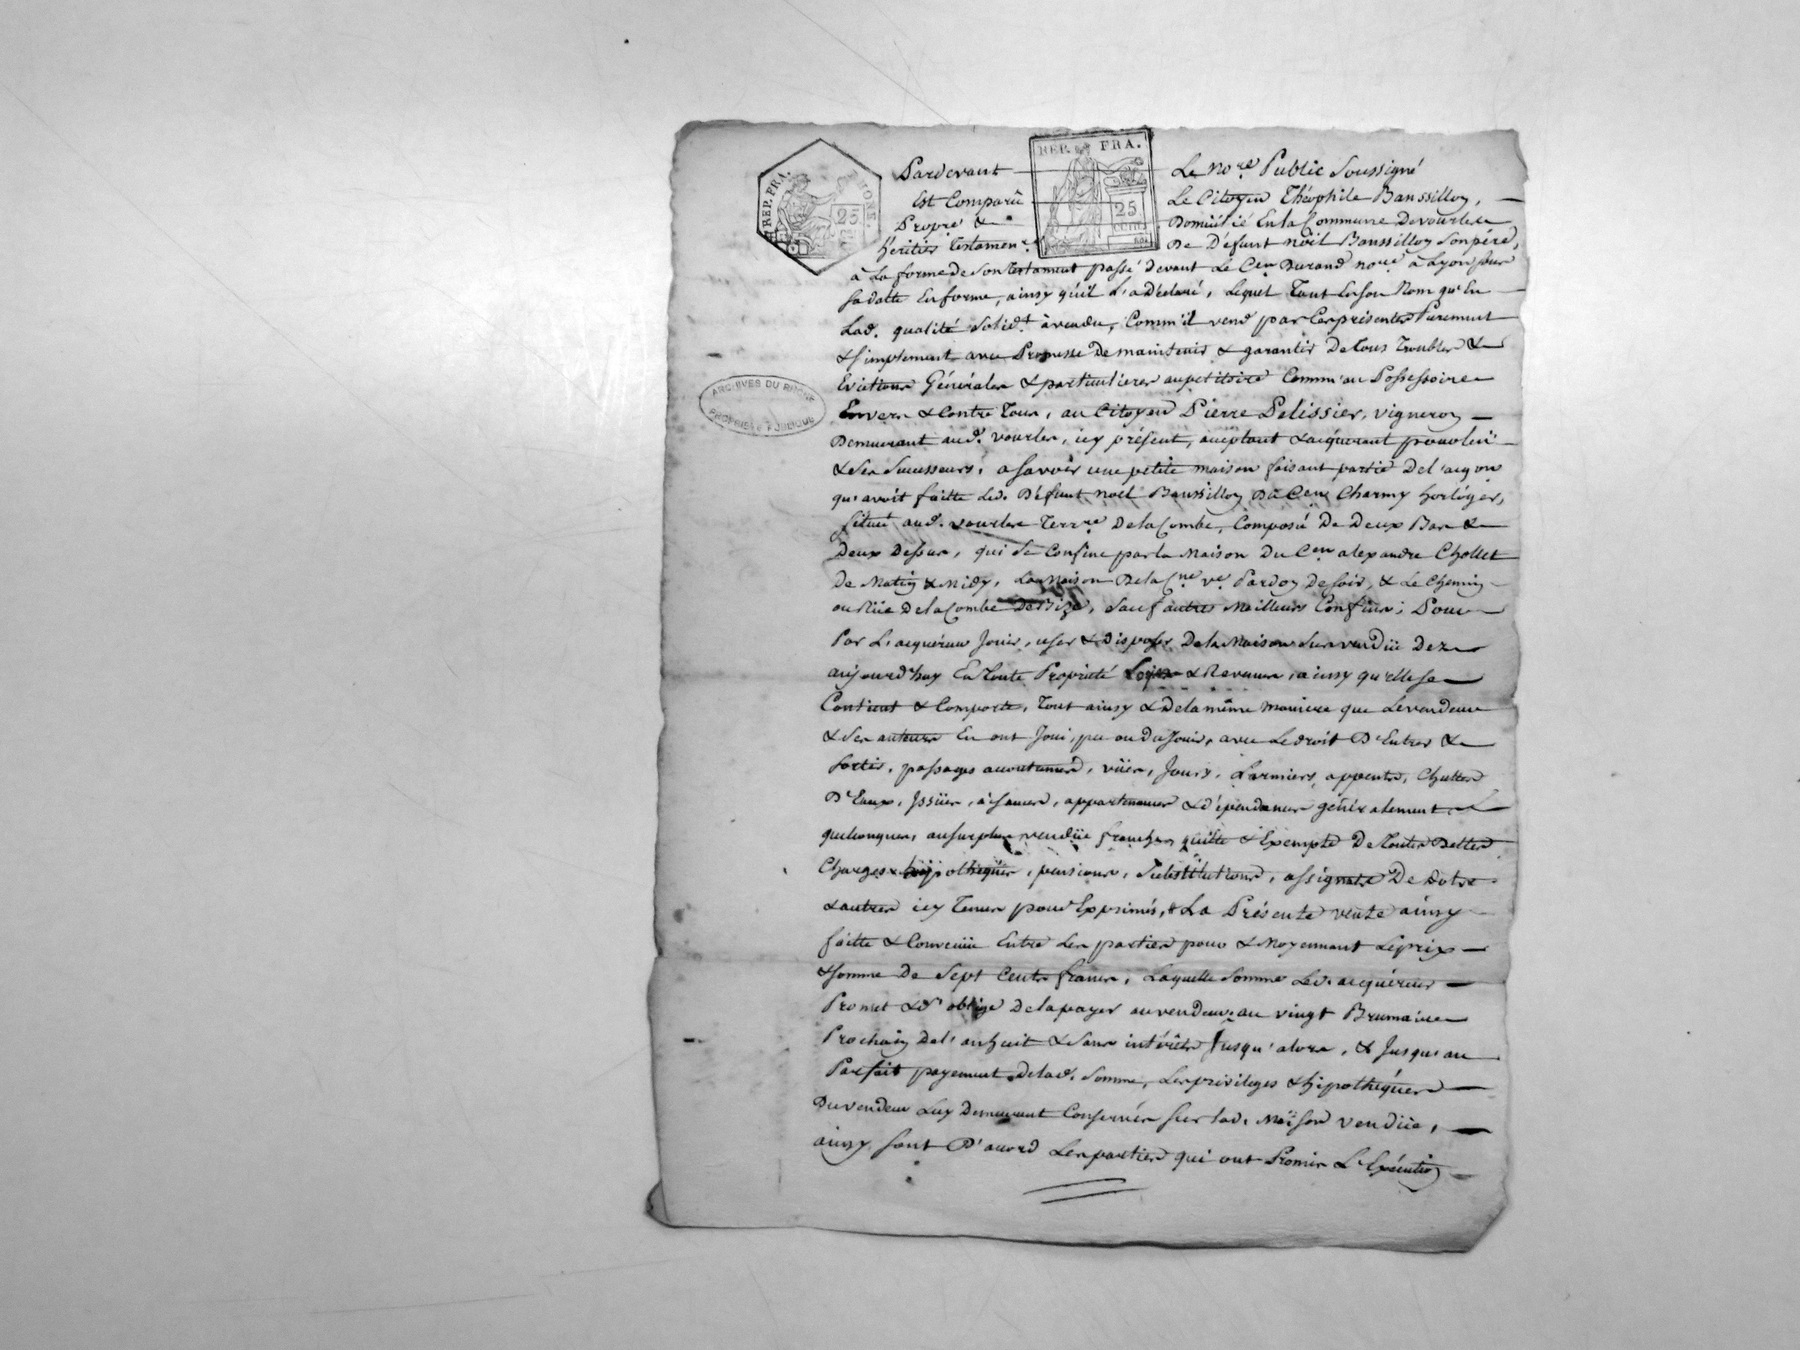 REP. FRA.
25
REP. FRA.
25
CENT.
ARCHIVES DU RHONE
PROPRIÉTÉ PUBLIQUE
Pardevant Le no.re Public Soussigné
Est Comparû Le Citoyen Théophile Banssillon,
Propre & Domicilié En la Commune De vourles
héritier testamen.re De Défunt noël Banssillon Son père,
à La forme de Son Testament passé devant Le C.en Durand no.re à Lyon Sous
Sa datte En forme, ainsy qu'il L'a Déclaré, Lequel Tant En Son Nom qu'En
Lad. qualité Solid.t à vendu, Comm'il vend par Ces présentes Purement
& Simplement avec Promesse De maintenir & garantir De tous Troubles &
Evictions Générales & particulieres au petitoire Comm'au Possessoire
Envers & Contre Tous, au Citoyen Pierre Pelissier, vigneron
Demeurant aud. vourles, icy présent, acceptant & acquérant pour luy
& Ses Successeurs, a Savoir une petite maison faisant partie De l'acq.on
qu'avoit faitte Led. Défunt noël Banssillon Du C.en Charmy horlóger,
Située aud. vourles Terr.re De la Combe, Composée De Deux Bas &
Deux Dessus, qui Se Confine par la Maison Du C.en alexandre Chollet
De Matin & Midy, La Maison De la C.ne v.e Pardon De Soir, & Le Chemin
ou Rüe De la Combe De Bize, Sauf autres Meilleurs Confins; Pour
Par L'acquéreur Jouir, user & Disposer De la Maison Sus vendüe Dez
aujourd'huy En Toute Propriété & Revenus, ainsy qu'elle Se
Contient & Comporte, Tout ainsy & De la même maniere que Le vendeur
& Ses auteurs En ont Joui, pu ou Du Jouir, avec Le droit D'Entrer &
Sortir, passages accoutumés, vües, Jours, Larmiers, appents, Chuttes
D'Eaux, Issües, aisances, appartenances & dépendances généralement
quelconques, au Surplus vendüe franche, quitte & Exempte De Toutes Dettes
Charges & hypothèques, pensions, Substitutions, assignats De Dotte
& autres icy Tenus pour Exprimés, & La Présente vente ainsy
faitte & Convenüe Entre Les parties pour & Moyennant Le prix
& Somme De Sept Cents francs, Laquelle Somme Led. acquéreur
Promet & S'oblige De la payer au vendeur au vingt Brumaire
Prochain De l'an huit & Sans intérêts Jusqu'alors, & Jusqu'au
Parfait payement De lad. Somme, Les privileges & hipothéques
Du vendeur Luy Demeurent Conservés Sur lad. Maison vendüe,
ainsy Sont D'accord Les parties qui ont Promis L'Exécution